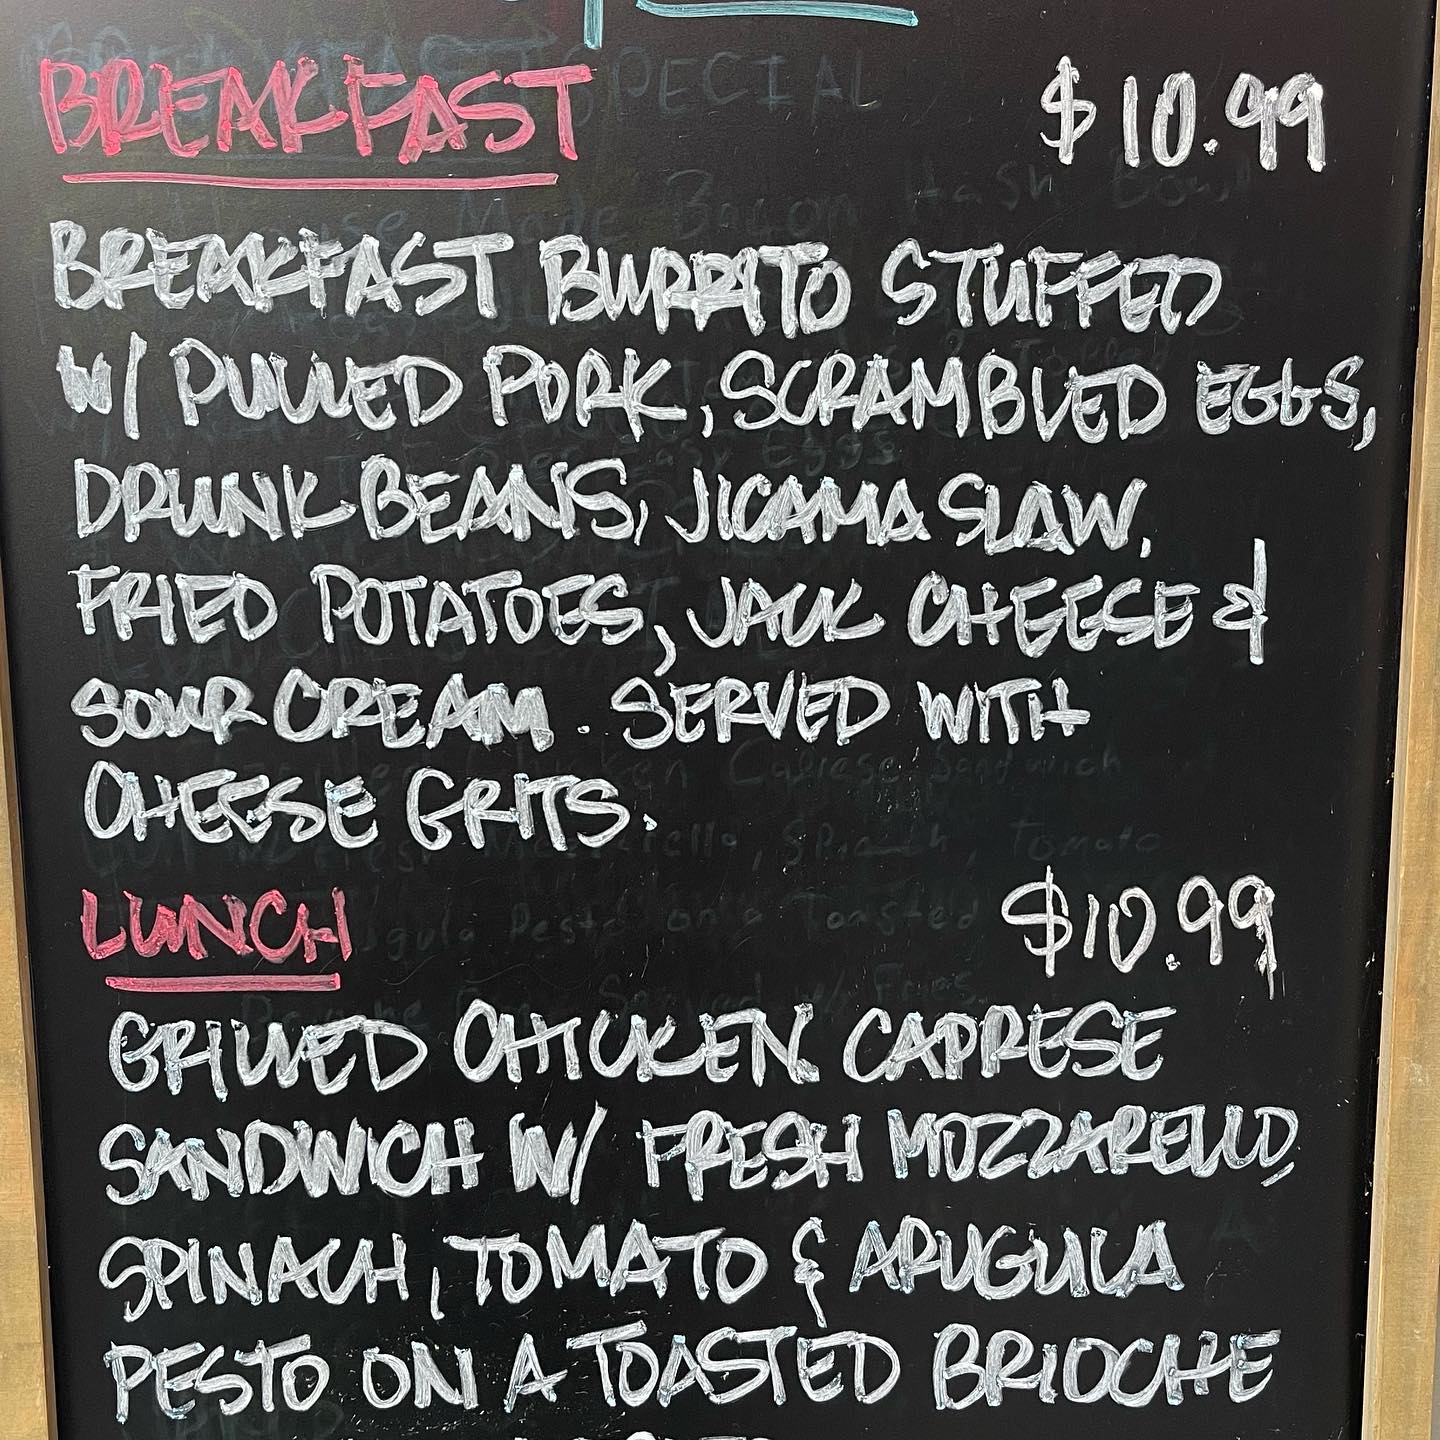 BREAKFAST $10.99
BREAKFAST BURRITO STUFFED
W/ PULLED PORK, SCRAMBLED EGGS,
DRUNK BEANS, JICAMA SLAW,
FRIED POTATOES, JACK CHEESE &
SOUR CREAM. SERVED WITH
CHEESE GRITS.
LUNCH $10.99
GRILLED CHICKEN CAPRESE
SANDWICH W/ FRESH MOZZARELLA,
SPINACH, TOMATO & ARUGULA
PESTO ON A TOASTED BRIOCHE